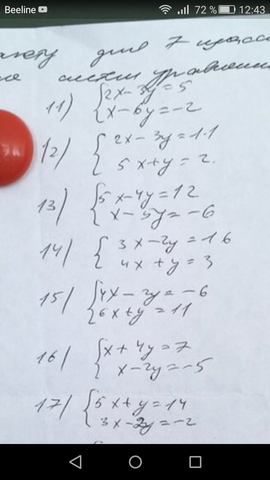 Beeline 72 % 12:43
для 7
11) {2x-3y=5
x-6y=-2
12) { 2x-3y=11
5x+y=2.
13) {5x-4y=12
x-5y=-6
14) { 3x-2y=16
4x+y=3
15) {4x-3y=-6
6x+y=11
16) {x+4y=7
x-2y=-5
17) {5x+y=14
3x-2y=-2